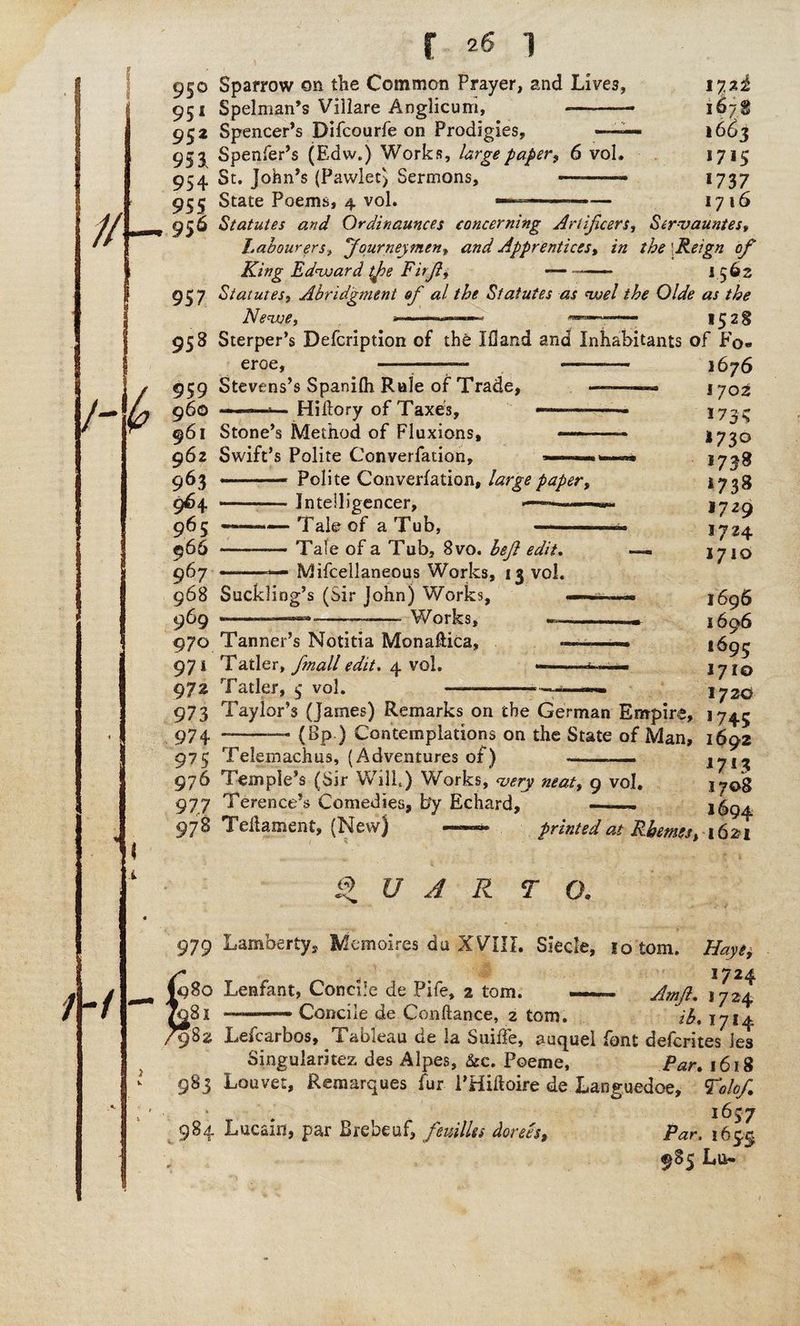 [ 26 ]
950 Sparrow on the Common Prayer, and Lives, 1722
951 Spelman's Villare Anglicum, ——— 1678
952 Spencer's Diſcourſe on Prodigies, —— 1663
953 Spenſer's (Edw.) Works, large paper, 6 vol. 1715
954 St. John's (Pawlet) Sermons, ——— 1737
955 State Poems, 4 vol. ——— 1716
956 Statutes and Ordinaunces concerning Artificers, Servauntes,
Labourers, Journeymen, and Apprentices, in the Reign of
King Edward the Firſt, ——— 1562
957 Statutes, Abridgment of al the Statutes as wel the Olde as the
Newe, ——— ——— 1528
958 Sterper's Deſcription of the Iſland and Inhabitants of Fo-
eroe, ——— ——— 1676
959 Stevens's Spaniſh Rule of Trade, ——— 1702
960 ——— Hiſtory of Taxes, ——— 1735
961 Stone's Method of Fluxions, ——— 1730
962 Swift's Polite Converſation, ——— 1738
963 ——— Polite Converſation, large paper, 1738
964 ——— Intelligencer, ——— 1729
965 ——— Tale of a Tub, ——— 1724
966 ——— Tale of a Tub, 8vo. beſt edit. — 1710
967 ——— Miſcellaneous Works, 13 vol.
968 Suckling's (Sir John) Works, ——— 1696
969 ——— Works, ——— 1696
970 Tanner's Notitia Monaſtica, ——— 1695
971 Tatler, ſmall edit. 4 vol. ——— 1710
972 Tatler, 5 vol. ——— 1720
973 Taylor's (James) Remarks on the German Empire, 1745
974 ——— (Bp.) Contemplations on the State of Man, 1692
975 Telemachus, (Adventures of) ——— 1713
976 Temple's (Sir Will.) Works, very neat, 9 vol. 1708
977 Terence's Comedies, by Echard, ——— 1694
978 Teſtament, (New) ——— printed at Rhemes, 1621
QUARTO.
979 Lamberty, Memoires du XVIII. Siecle, 10 tom. Haye,
1724
980 Lenfant, Concile de Piſe, 2 tom. —— Amſt. 1724
981 ——— Concile de Conſtance, 2 tom. ib. 1714
982 Leſcarbos, Tableau de la Suiſſe, auquel ſont deſcrites les
Singularitez des Alpes, &c. Poeme, Par. 1618
983 Louvet, Remarques ſur l'Hiſtoire de Languedoe, Toloſ.
1657
984 Lucain, par Brebeuf, feuilles doreés, Par. 1655
985 Lu-